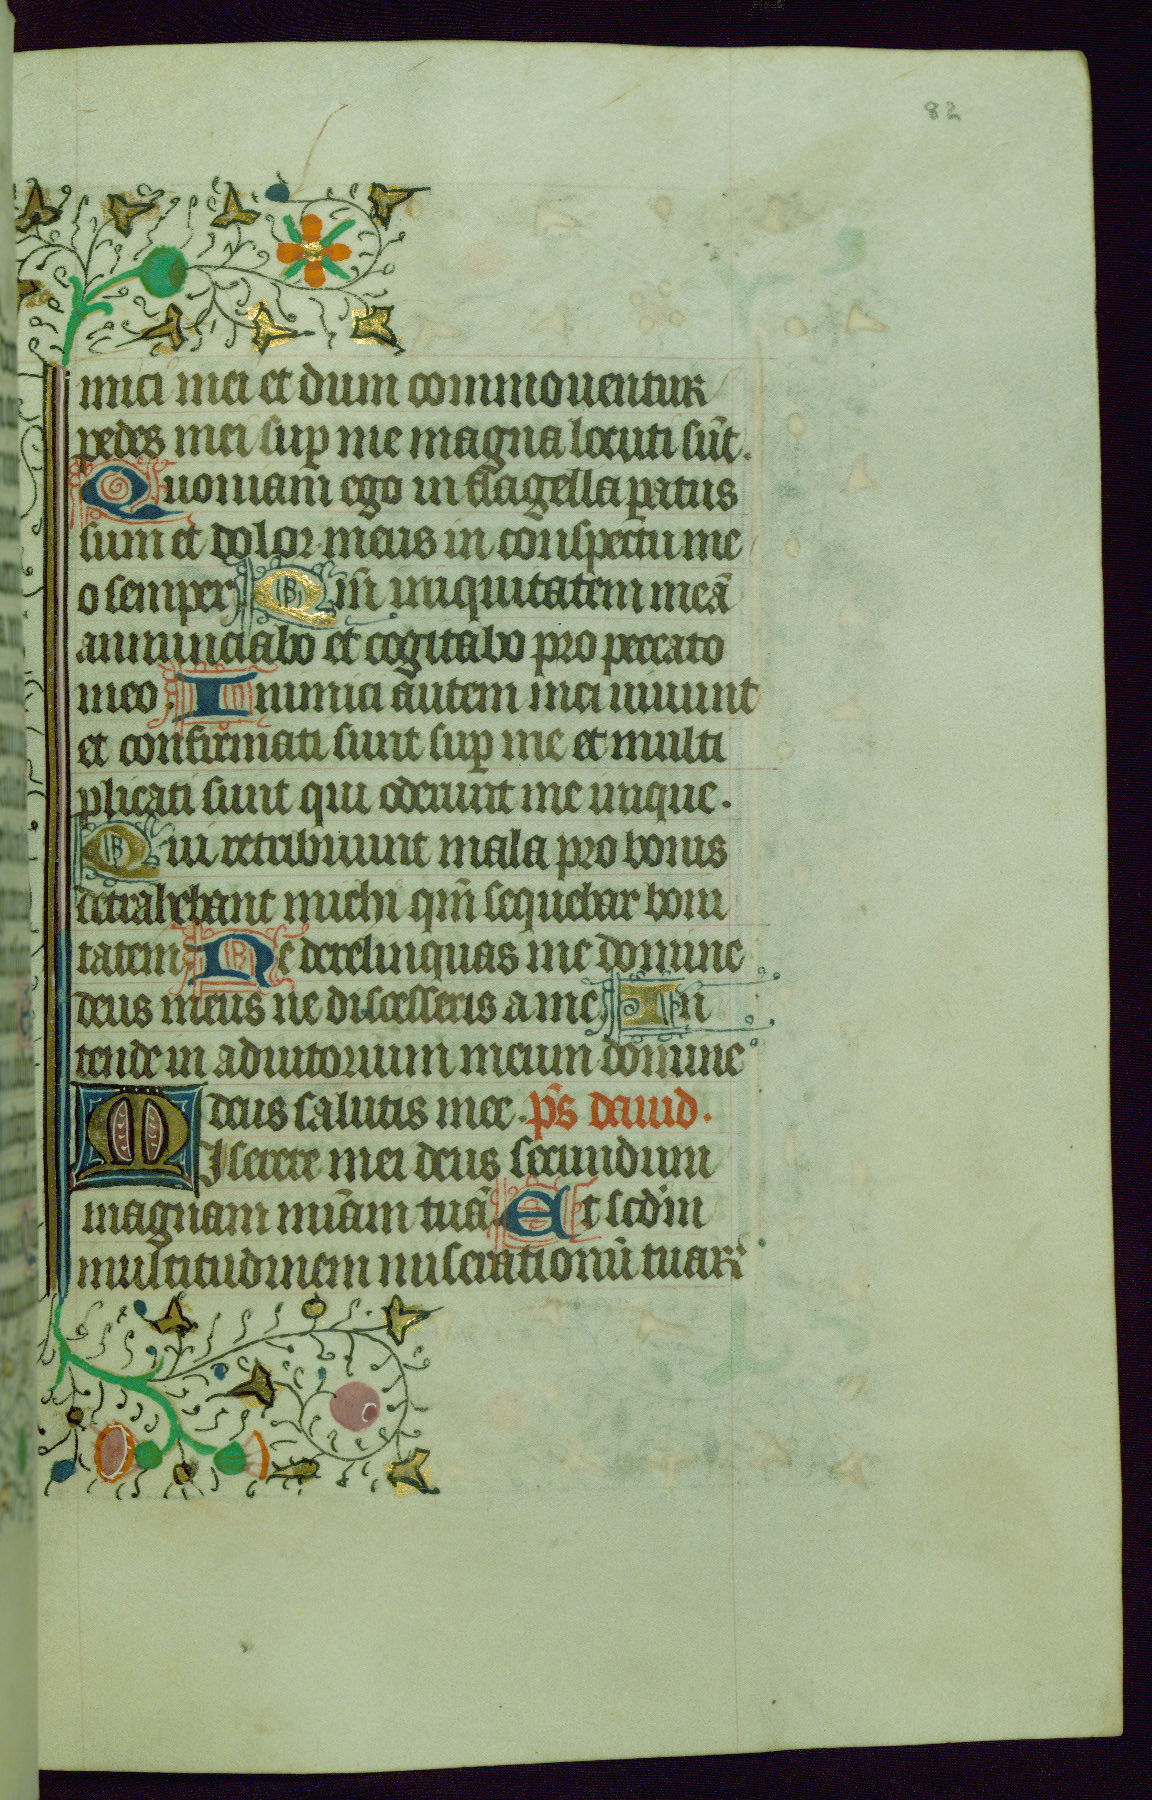 82
mici mei et dum commouentur
pedes mei sup me magna locuti sūt.
Quoniam ego in flagella paratus
sum et dolor meus in conspectu me
o semper Qisi iniquitatem meā
annunciabo et cogitabo pro peccato
meo. Inimici autem mei uiuunt
et confirmati sunt sup me et multi
plicati sunt qui oderunt me inique.
Qui retribuunt mala pro bonis
detrahebant michi qm̄ sequebar boni
tatem Ne derelinquas me domine
deus meus ne discesseris a me In
tende in adiutorium meum domine
deus salutis mee. ps̄ dauid.
Miserere mei deus secundum
magnam miām tuā Et scdm
multitudinem miserationū tuar